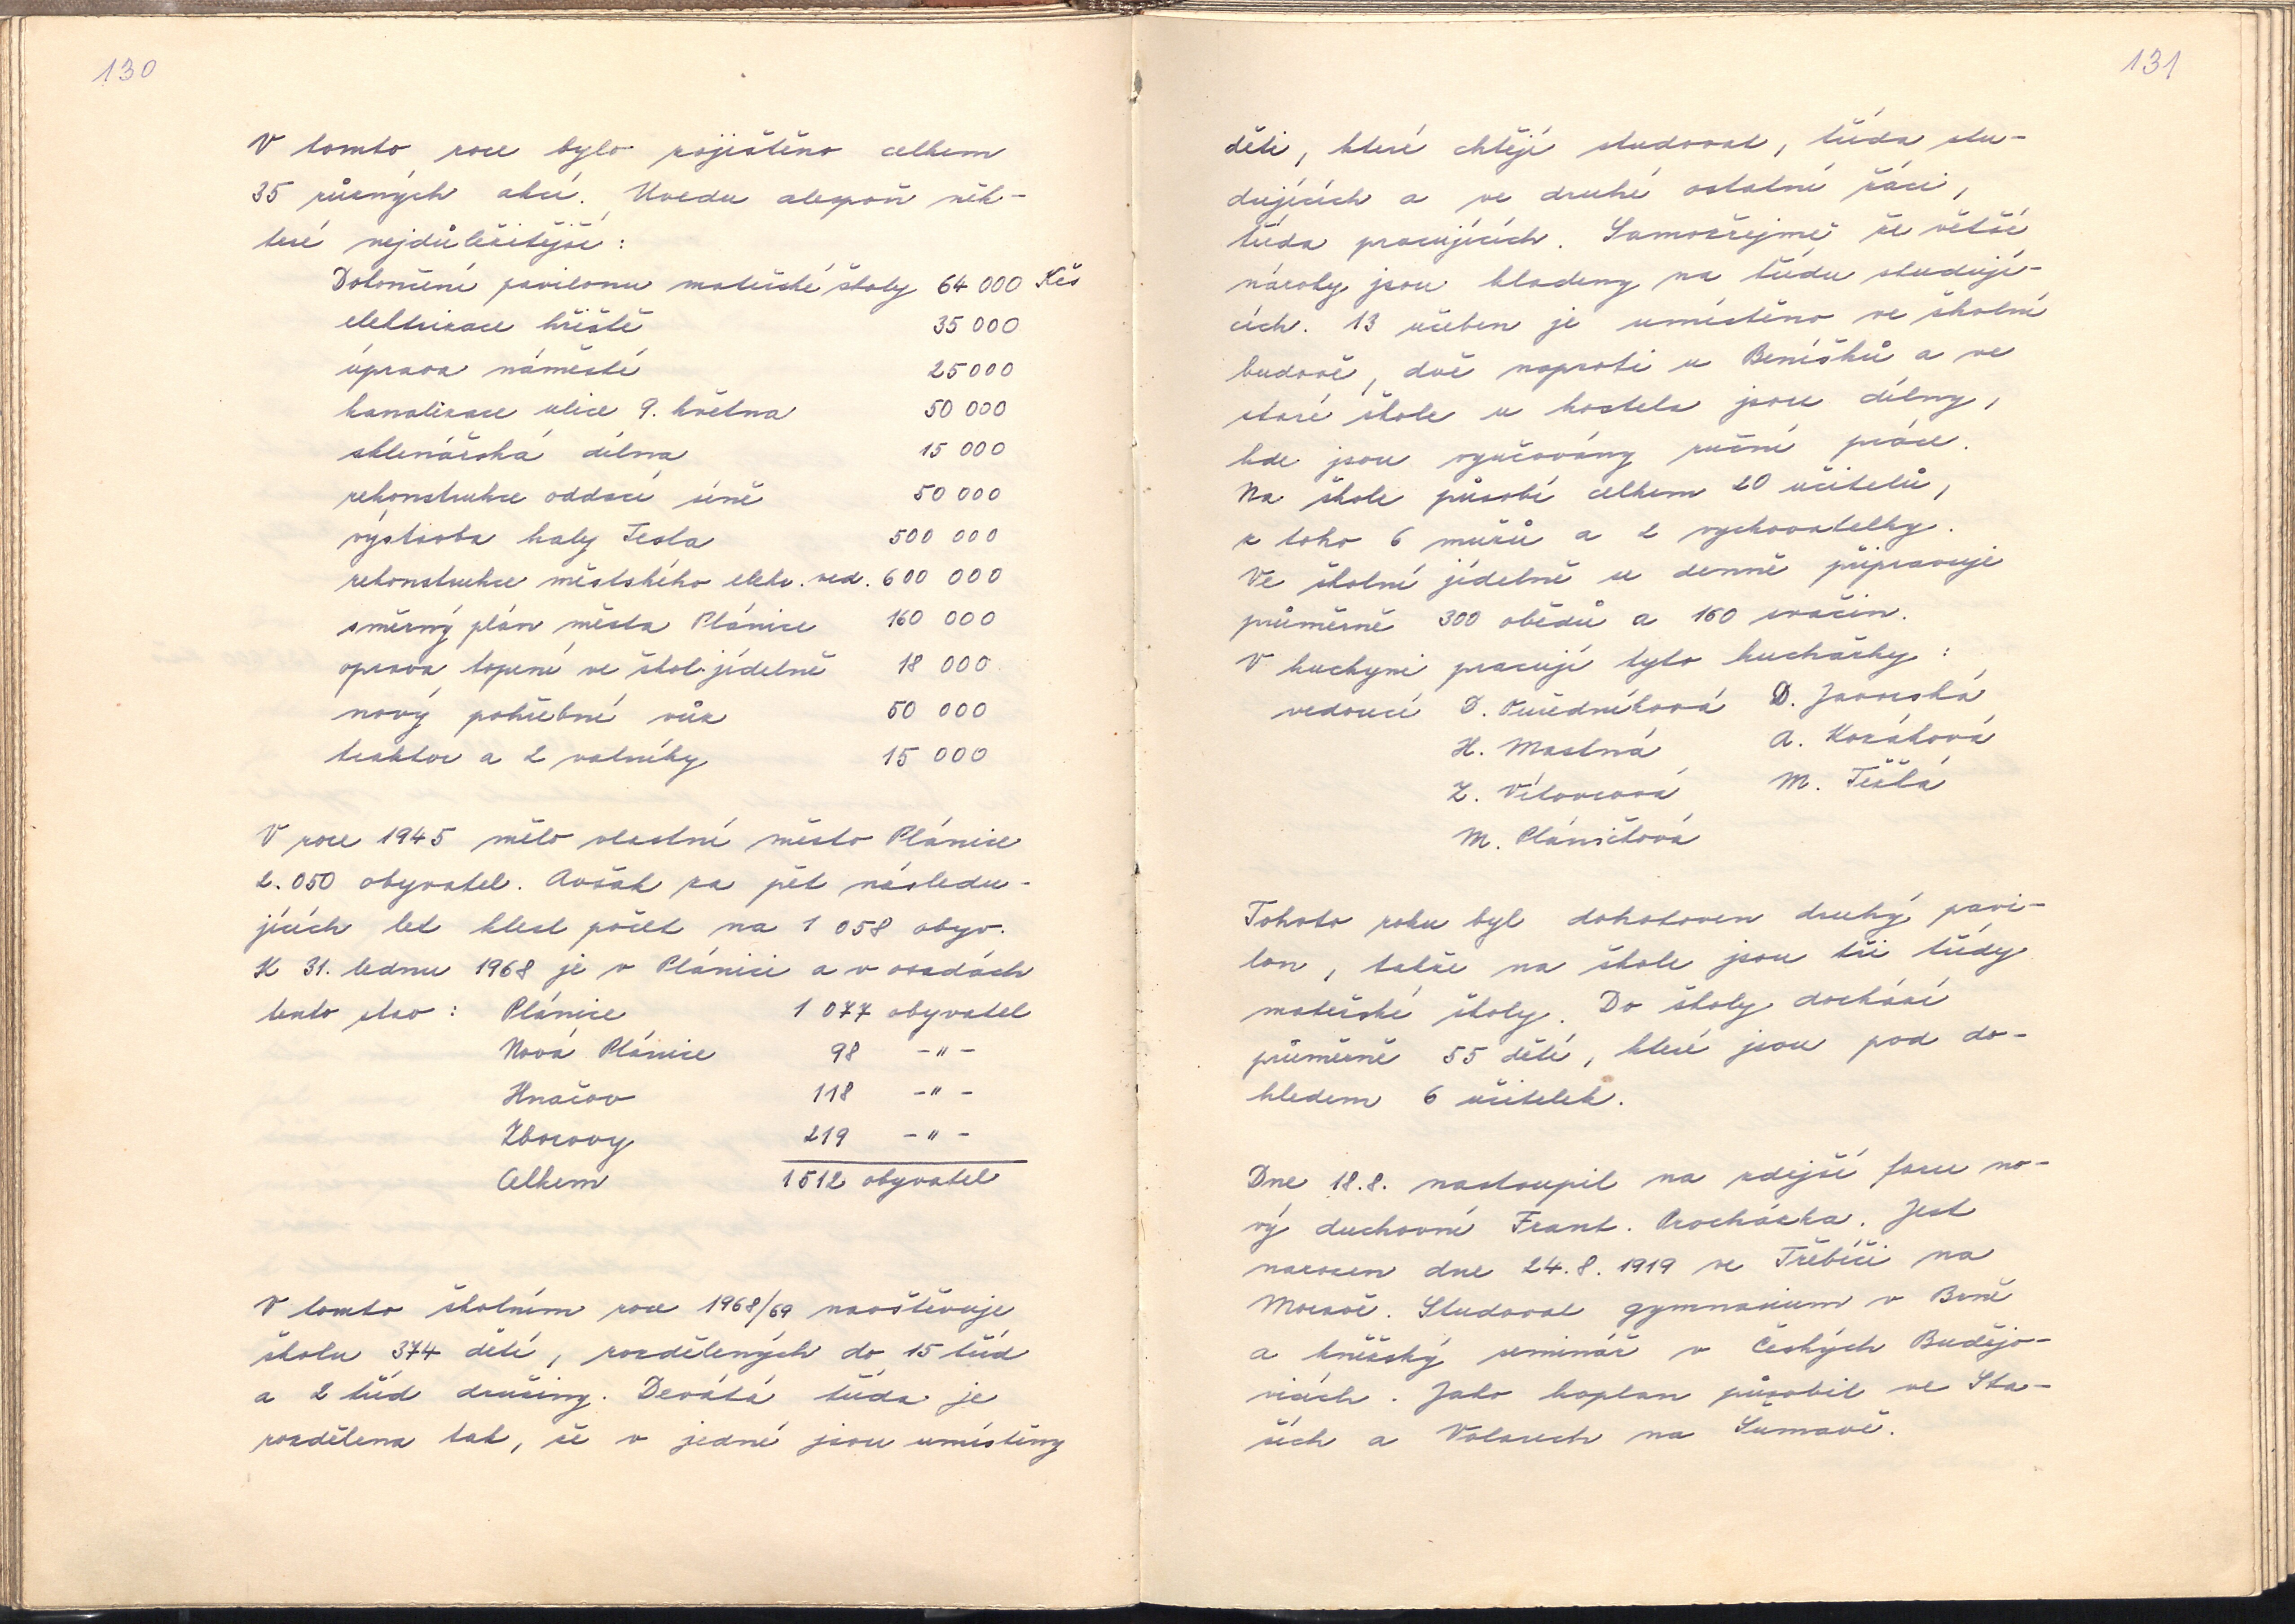 130
V tomto roce bylo zajištěno celkem
35 různých akcí. Uvedu alespoň něk-
teré nejdůležitější:
Dokončení pavilonu mateřské školy 64 000 Kčs
elektrizace hřiště 35 000
úprava náměstí 25 000
kanalizace ulice 9. května 50 000
sklenářská dílna 15 000
rekonstrukce oddací síně 50 000
výstavba haly Tesla 500 000
rekonstrukce městského elektr. ved. 600 000
směrný plán města Plánice 160 000
oprava topení ve škol. jídelně 18 000
nový pohřební vůz 50 000
traktor a 2 valníky 15 000
V roce 1945 mělo vlastní město Plánice
2.050 obyvatel. Avšak za pět následu-
jících let klesl počet na 1 058 obyv.
K 31. lednu 1968 je v Plánici a v osadách
tento stav: Plánice 1 077 obyvatel
Nová Plánice 98 -"-
Hnačov 118 -"-
Zborovy 219 -"-
Celkem 1512 obyvatel
V tomto školním roce 1968/69 navštěvuje
školu 374 dětí, rozdělených do 15 tříd
a 2 tříd družiny. Devátá třída je
rozdělena tak, že v jedné jsou umístěny
131
děti, které chtějí studovat, třída stu-
dujících a ve druhé ostatní žáci,
třída pracujících. Samozřejmě že větší
nároky jsou kladeny na třídu studují-
cích. 13 učeben je umístěno ve školní
budově, dvě naproti u Beníšků a ve
staré škole u kostela jsou dílny,
kde jsou vyučovány ruční práce.
Na škole působí celkem 20 učitelů,
z toho 6 mužů a 2 vychovatelky.
Ve školní jídelně se denně připravuje
průměrně 300 obědů a 160 svačin.
V kuchyni pracují tyto kuchařky:
vedoucí D. D. Javorská
H. Mastná A. Korálová
Z. Vítovcová M. Težká
M. Pláničková
Tohoto roku byl dohotoven druhý pavi-
lon, takže na škole jsou tři třídy
mateřské školy. Do školy dochází
průměrně 55 dětí, které jsou pod do-
hledem 6 učitelek.
Dne 18.8. nastoupil na zdejší faru no-
vý duchovní Frant. Procházka. Jest
narozen dne 24.8.1919 ve Třebíči na
Moravě. Studoval gymnasium v Brně
a kněžský seminář v Českých Budějo-
vicích. Jako kaplan působil ve Sta-
ších a Volarech na Šumavě.